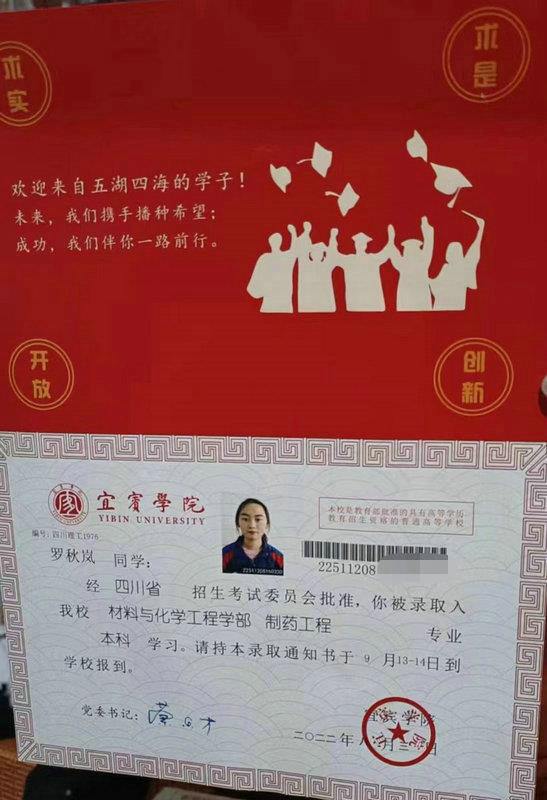 求实
求是
欢迎来自五湖四海的学子！
未来，我们携手播种希望；
成功，我们伴你一路前行。
开放
创新
宜宾學院
YIBIN UNIVERSITY
本校是教育部批准的具有高等学历
教育招生资格的普通高等学校
编号：四川理工1976
罗秋岚 同学：
22511208
经 四川省 招生考试委员会批准，你被录取入
我校 材料与化学工程学部 制药工程 专业
本科 学习。请持本录取通知书于 9 月13-14日到
学校报到。
党委书记：
宜宾学院
二〇二二年八月三 日